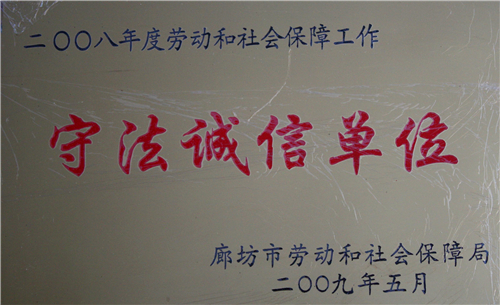 二〇〇八年度劳动和社会保障工作
守法诚信单位
廊坊市劳动和社会保障局
二〇〇九年五月